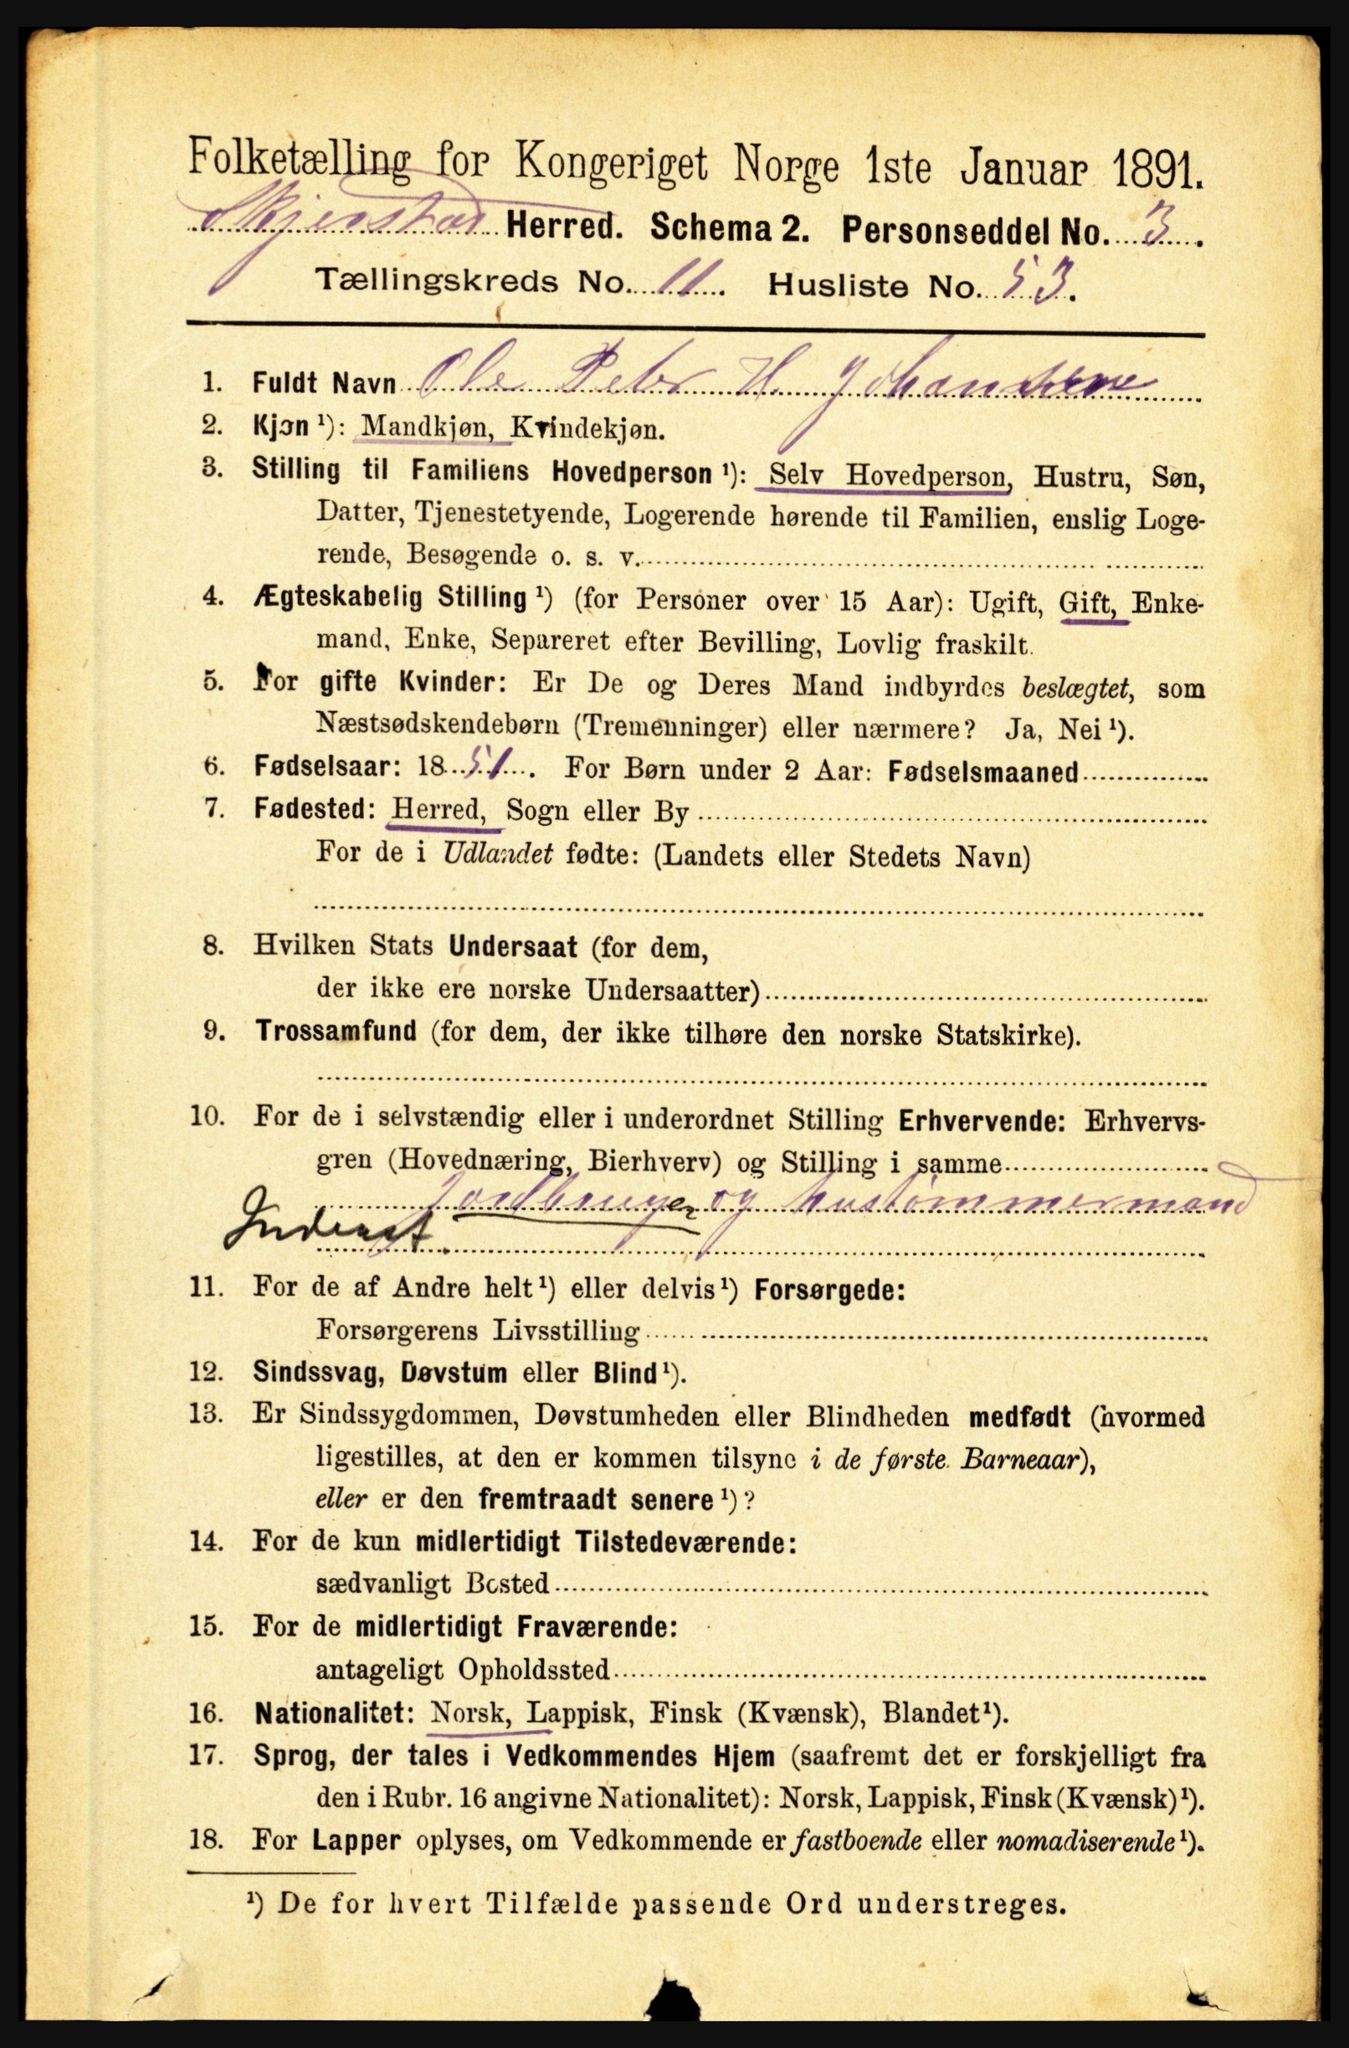 Folketælling for Kongeriget Norge 1ste Januar 1891.
Skjerstad Herred. Schema 2. Personseddel No. 3.
Tællingskreds No. 11. Husliste No. 53.
1. Fuldt Navn Ole Peter H. Johansen
2. Kjøn ¹): Mandkjøn, Kvindekjøn.
3. Stilling til Familiens Hovedperson ¹): Selv Hovedperson, Hustru, Søn,
Datter, Tjenestetyende, Logerende hørende til Familien, enslig Loge-
rende, Besøgende o. s. v.
4. Ægteskabelig Stilling ¹) (for Personer over 15 Aar): Ugift, Gift, Enke-
mand, Enke, Separeret efter Bevilling, Lovlig fraskilt.
5. For gifte Kvinder: Er De og Deres Mand indbyrdes beslægtet, som
Næstsødskendebørn (Tremenninger) eller nærmere? Ja, Nei ¹).
6. Fødselsaar: 1851. For Børn under 2 Aar: Fødselsmaaned
7. Fødested: Herred, Sogn eller By
For de i Udlandet fødte: (Landets eller Stedets Navn)
8. Hvilken Stats Undersaat (for dem,
der ikke ere norske Undersaatter)
9. Trossamfund (for dem, der ikke tilhøre den norske Statskirke).
10. For de i selvstændig eller i underordnet Stilling Erhvervende: Erhvervs-
gren (Hovednæring, Bierhverv) og Stilling i samme
Jordbruger og hustømmermand
Inderst.
11. For de af Andre helt ¹) eller delvis ¹) Forsørgede:
Forsørgerens Livsstilling
12. Sindssvag, Døvstum eller Blind ¹).
13. Er Sindssygdommen, Døvstumheden eller Blindheden medfødt (hvormed
ligestilles, at den er kommen tilsyne i de første Barneaar),
eller er den fremtraadt senere ¹)?
14. For de kun midlertidigt Tilstedeværende:
sædvanligt Bosted
15. For de midlertidigt Fraværende:
antageligt Opholdssted
16. Nationalitet: Norsk, Lappisk, Finsk (Kvænsk), Blandet ¹).
17. Sprog, der tales i Vedkommendes Hjem (saafremt det er forskjelligt fra
den i Rubr. 16 angivne Nationalitet): Norsk, Lappisk, Finsk (Kvænsk) ¹).
18. For Lapper oplyses, om Vedkommende er fastboende eller nomadiserende ¹).
¹) De for hvert Tilfælde passende Ord understreges.